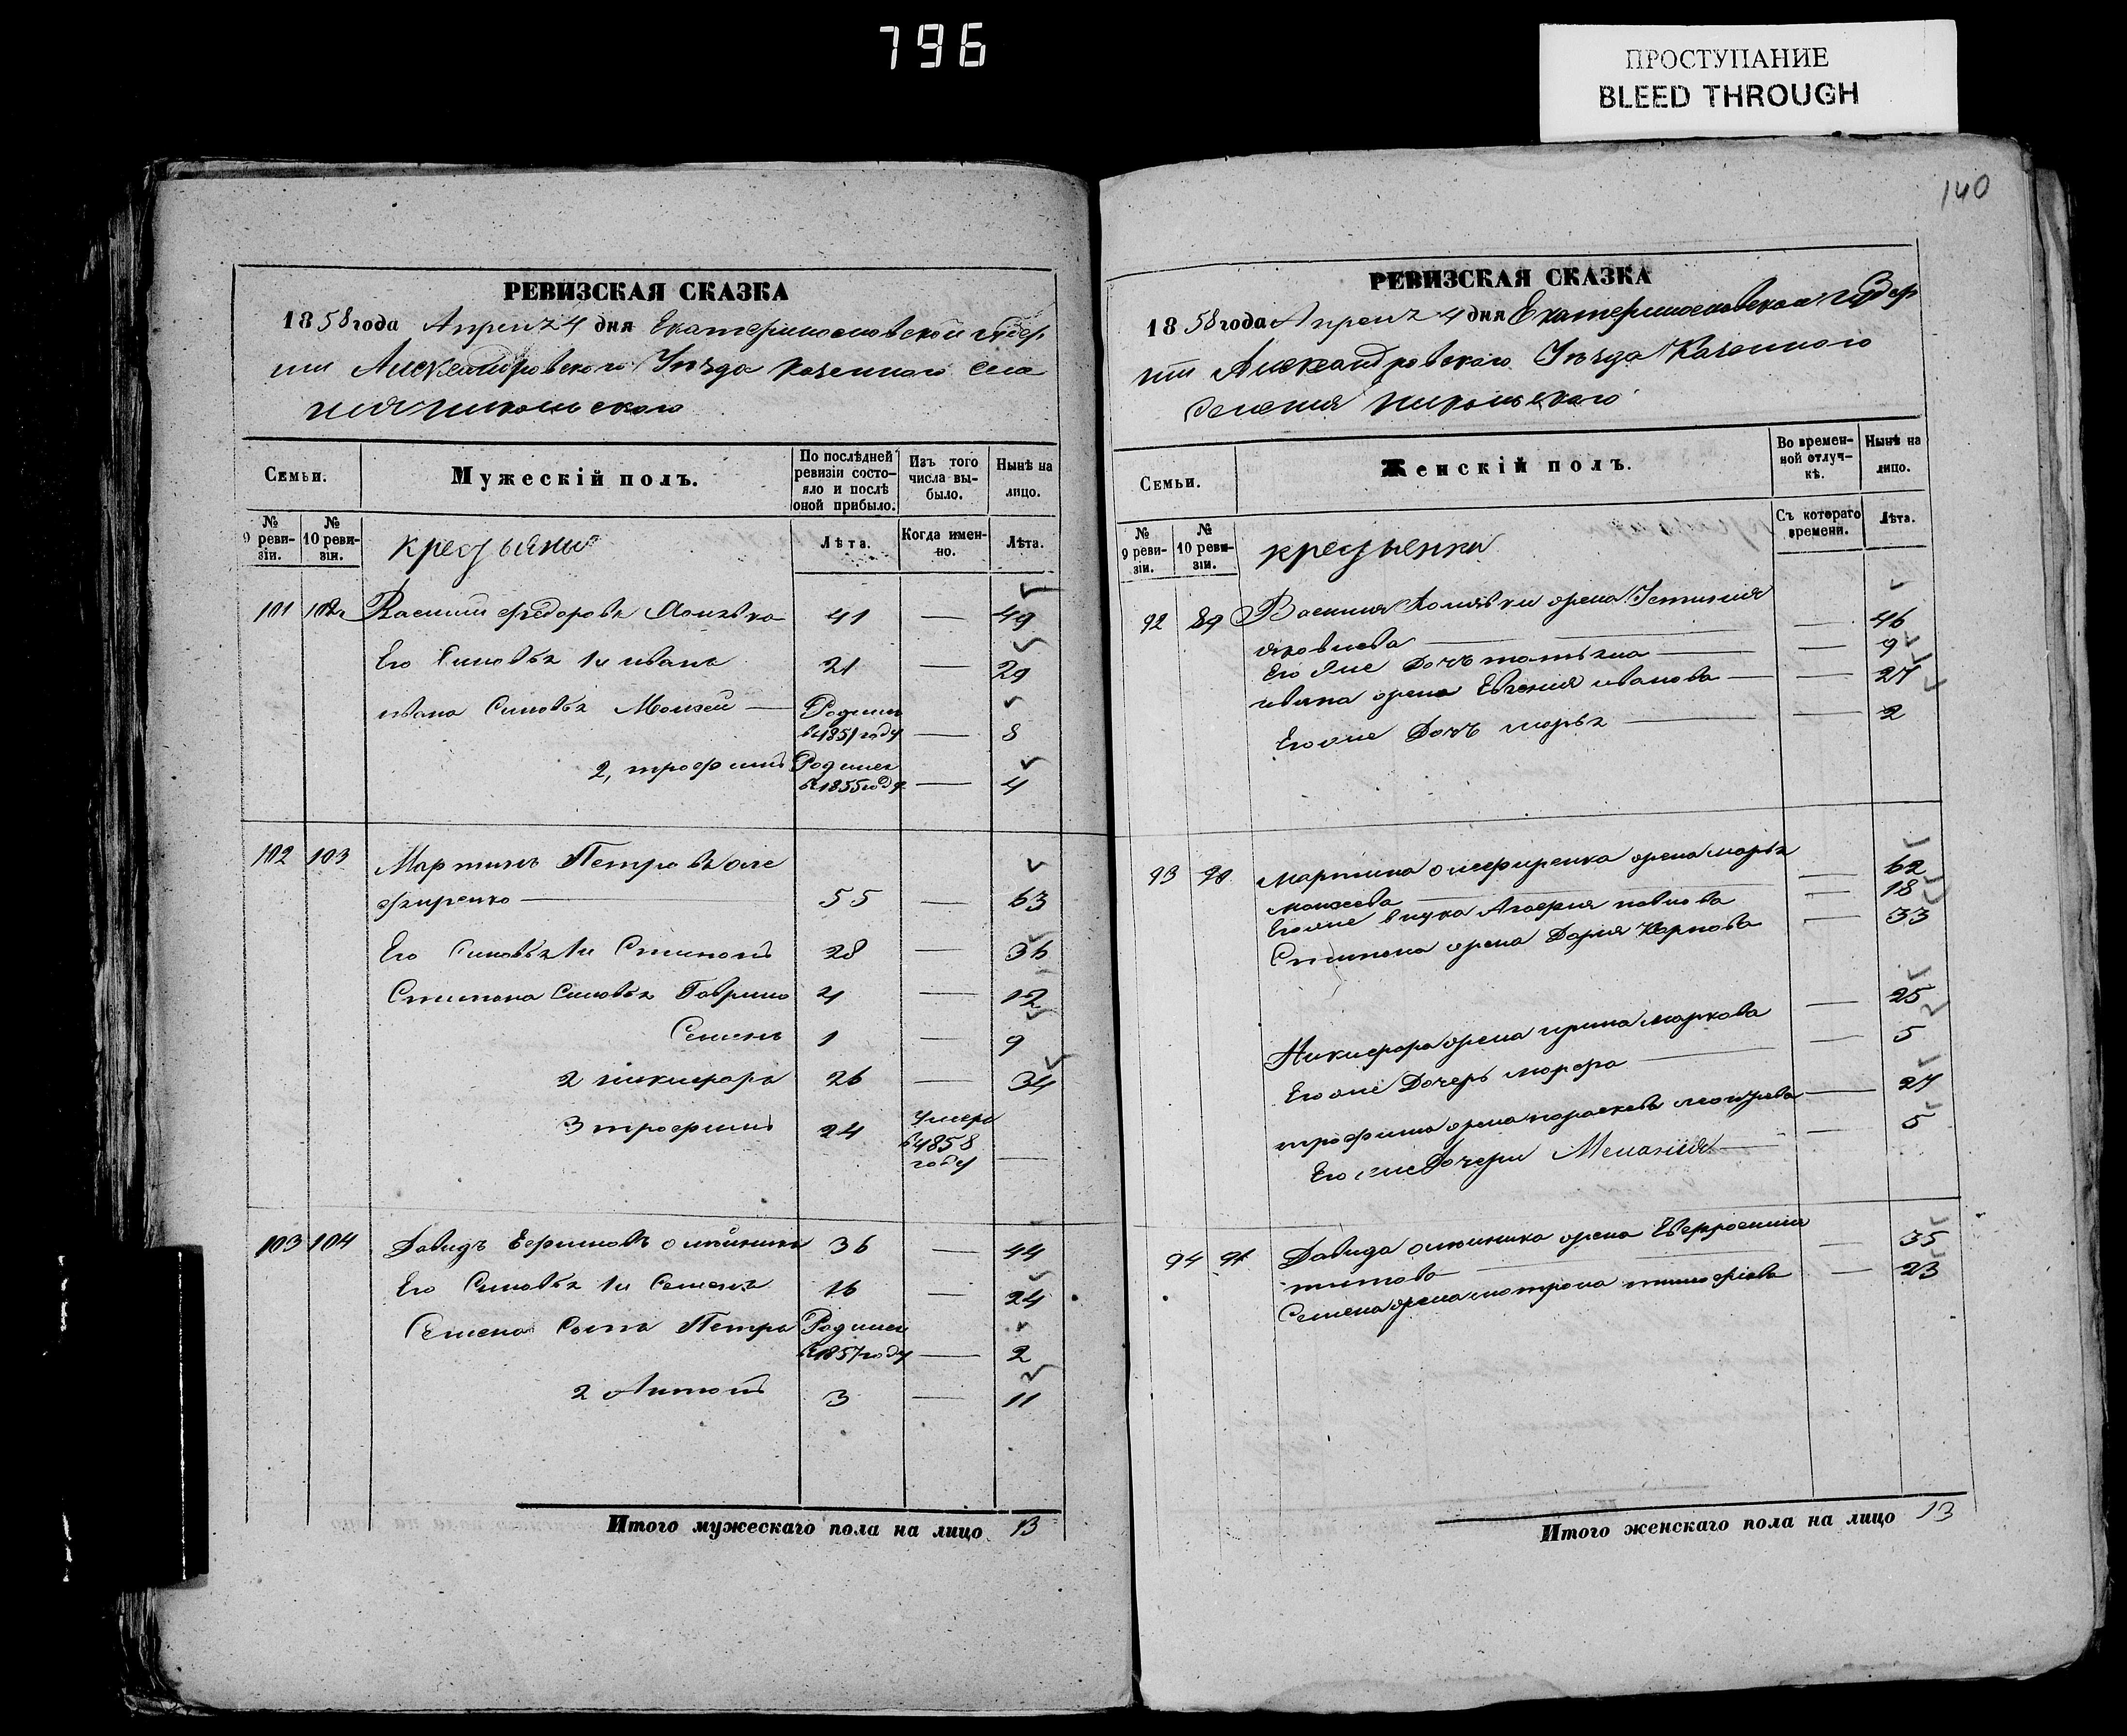 796
ПРОСТУПАНИЕ
BLEED THROUGH
140
РЕВИЗСКАЯ СКАЗКА
1858 года Апреля 4 дня Екатеринославской губер
нии Александровского Уезда казенного селе
ния николского
Семьи.
Мужескій полъ.
По послѣдней ревизіи состояло и послѣ оной прибыло.
Изъ того числа выбыло.
Нынѣ на лицо.
№ 9 ревизіи.
№ 10 ревизіи.
крестьяне
Лѣта.
Когда именно.
Лѣта.
101 102 Василий федоровъ 41 — 49
Его Сыновья 1й иванъ 21 — 29
ивана Сыновья Моисей — Родился в 1851 году — 8
2, трофимъ Родился в 1855 году — 4
102 103 Мартинъ Петровъ оле
фиренко — 55 — 63
Его Сыновья 1й Степанъ 28 — 36
Степана Сыновья Гаврило 4 — 12
Семенъ 1 — 9
2 никифоръ 26 — 34
3 трофимъ 24 Умеръ в 1858 году —
103 104 Давидъ Ефимовъ олийникъ 36 — 44
Его Сыновья 1й Семенъ 16 — 24
Семена Сынъ Петръ Родился в 1857 году — 2
2 Антонъ 3 — 11
Итого мужескаго пола на лицо 13
РЕВИЗСКАЯ СКАЗКА
1858 года Апреля 4 дня Екатеринославской губер
нии Александровского Уезда Казенного
селения николского
Семьи.
Женскій полъ.
Во временной отлучкѣ.
Нынѣ на лицо.
№ 9 ревизіи.
№ 10 ревизіи.
крестьянки
Съ котораго времени.
Лѣта.
92 89 Василия жена Устиния
яковлева — — 46
Его же Дочь татьяна — — 9
ивана жена Евгения иванова — — 27
Его же Дочь марья — — 2
93 90 Мартина олефиренка жена марья
моисеева — — 62
Его же внука павлова — 18
Степана жена Дария Карпова — 33
Никифора жена ирина маркова — 25
Его же Дочерь марфа — — 5
трофима жена параскева — 27
Его же Дочери Мелания — — 5
94 91 Давида олийника жена Евфросиния
титова — — 35
Семена жена матрона тимофиева — 23
Итого женскаго пола на лицо 13